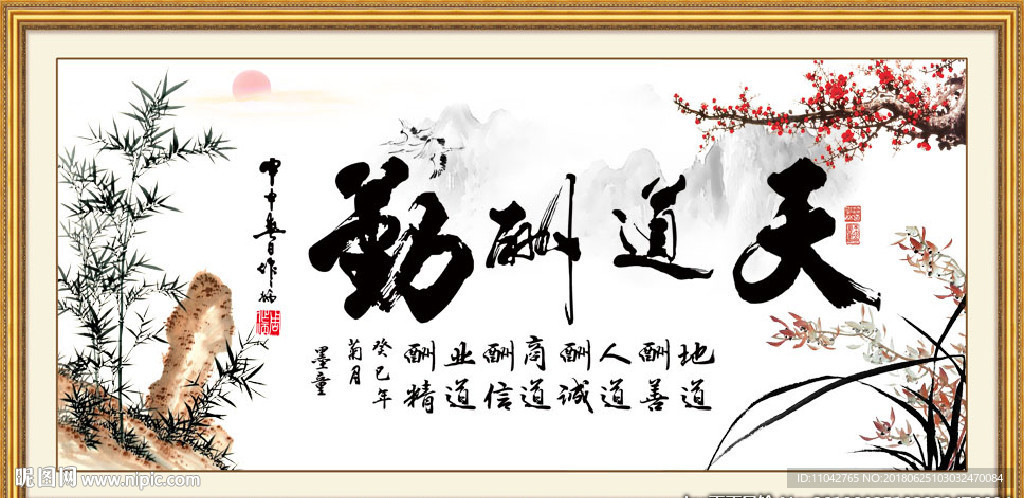 天道酬勤
地道酬善
人道酬诚
商道酬信
业道酬精
癸巳年
菊月
墨童
昵图网 www.nipic.com
ID:11042765 NO:20180625103032470084